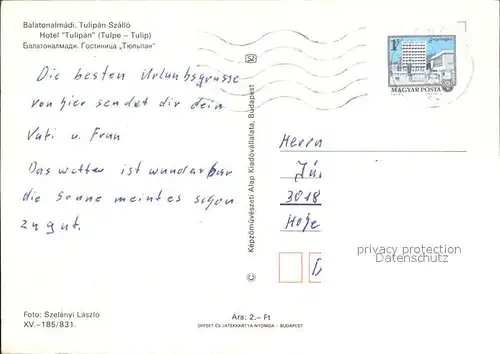 Balatonalmádi. Tulipán Szálló
Hotel "Tulipán" (Tulpe – Tulip)
Балатоналмади. Гостиница „Тюльпан"
Die besten Urlaubsgrüsse
von hier sendet dir dein
Vati u. Frau
Das wetter ist wunderbar
die Sonne meint es schon
zu gut.
Foto: Szelényi László
XV.–185/831.
Képzőművészeti Alap Kiadóvállalata, Budapest
Ára: 2.– Ft
OFFSET ÉS JÁTÉKKÁRTYA NYOMDA – BUDAPEST
1 Ft
MAGYAR POSTA
Herrn
3018
privacy protection
Datenschutz